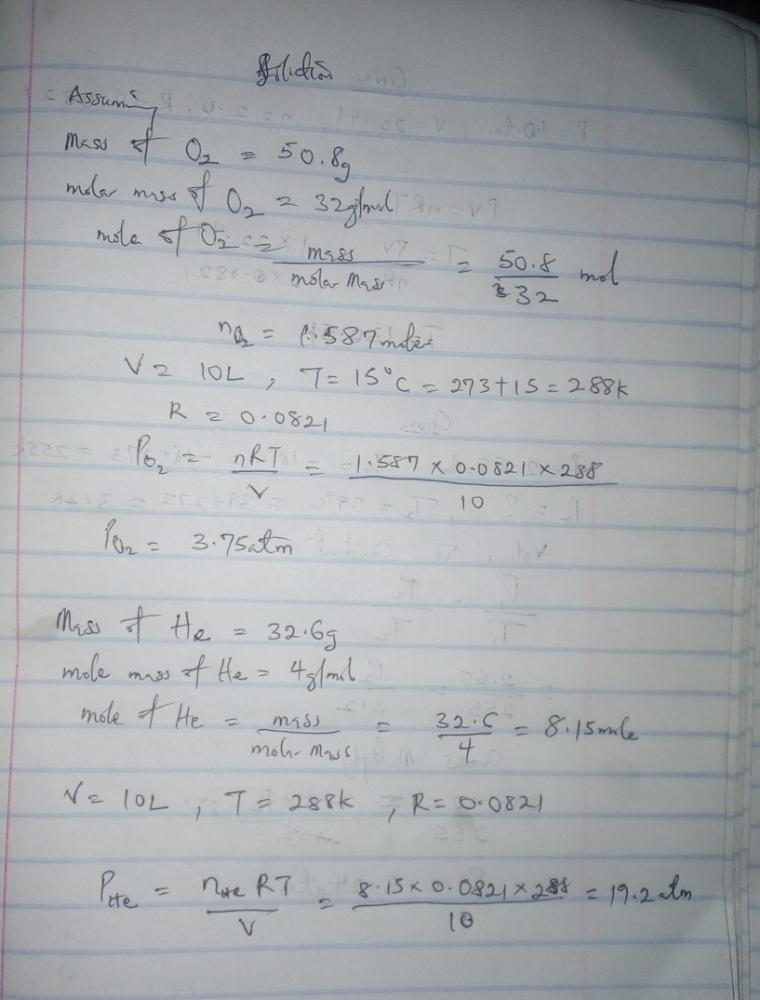 Solution
Assuming
Mass of O₂ = 50.8g
molar mass of O₂ = 32g/mol
mole of O₂ = mass / molar Mass = 50.8 / 32 mol
nO₂ = 1.587 moles
V = 10L , T = 15°C = 273+15 = 288k
R = 0.0821
PO₂ = nRT / V = 1.587 × 0.0821 × 288 / 10
PO₂ = 3.75atm
Mass of He = 32.6g
mole mass of He = 4g/mol
mole of He = mass / molar mass = 32.6 / 4 = 8.15 mole
V = 10L , T = 288k , R = 0.0821
PHe = nHe RT / V = 8.15 × 0.0821 × 288 / 10 = 19.2 atm